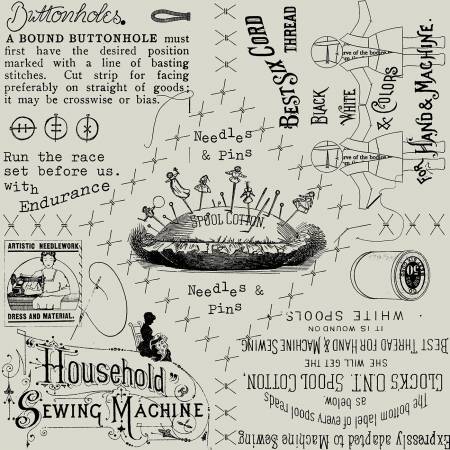 Buttonholes.
A BOUND BUTTONHOLE must
first have the desired position
marked with a line of basting
stitches. Cut strip for facing
preferably on straight of goods;
it may be crosswise or bias.
Run the race
set before us.
with Endurance
ARTISTIC NEEDLEWORK
DRESS AND MATERIAL.
Household
SEWING MACHINE
Needles
& Pins
SPOOL COTTON.
Needles &
Pins
BEST SIX CORD
THREAD
BLACK
WHITE
& COLORS
FOR HAND & MACHINE.
rve of the bodice
rve of the bodice
50
Expressly adapted to Machine Sewing
The bottom label of every spool reads
as below.
CLOCKS O.N.T. SPOOL COTTON,
SHE WILL GET THE
BEST THREAD FOR HAND & MACHINE SEWING
IT IS WOUND ON
WHITE SPOOLS